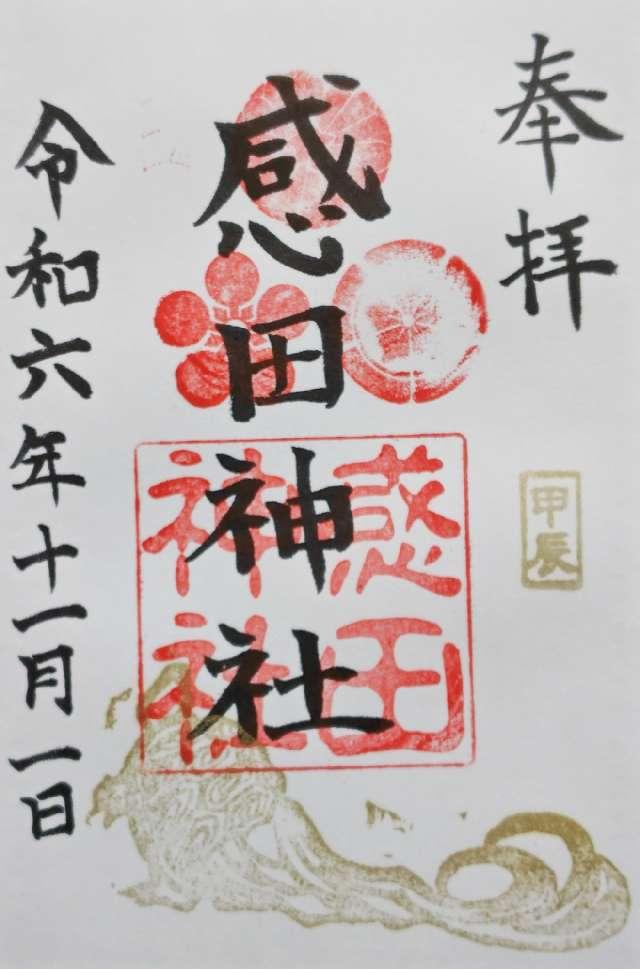 奉拝
甲辰
感田神社
感田神社
令和六年十一月一日